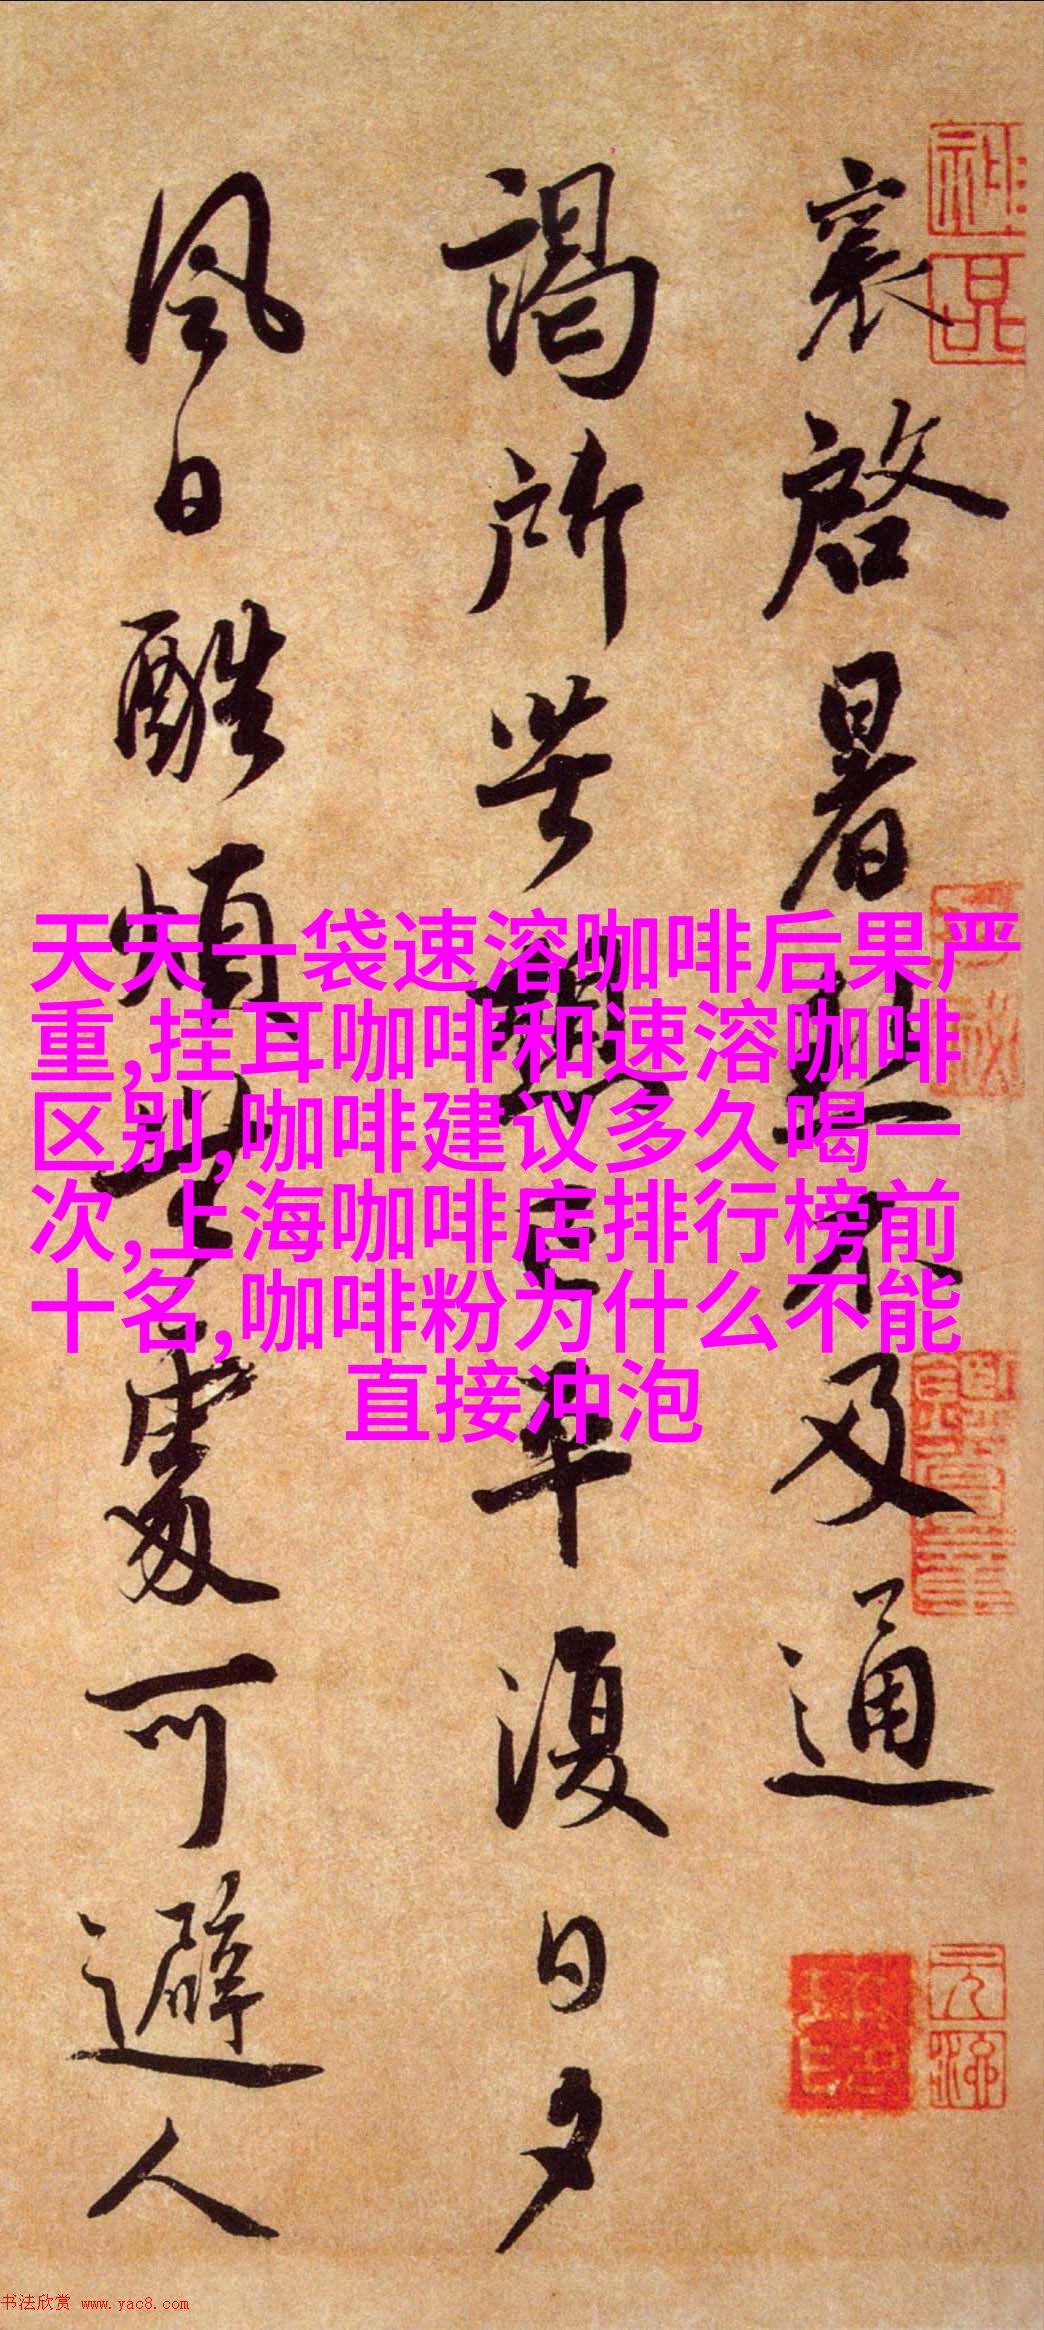 襄啓暑熱不及通
謁所苦想已平復日夕
風日酷煩無處可避人
天天一袋速溶咖啡后果严
重,挂耳咖啡和速溶咖啡
区别,咖啡建议多久喝一
次,上海咖啡店排行榜前
十名,咖啡粉为什么不能
直接冲泡
书法欣赏 www.yac8.com